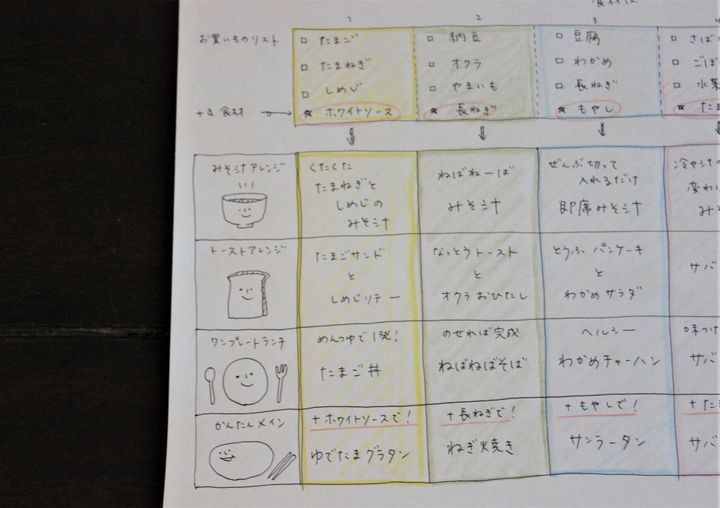 1 2 3
お買いものリスト
□ たまご □ 納豆 □ 豆腐 □ さば
□ たまねぎ □ オクラ □ わかめ □ ごぼ
□ しめじ □ やまいも □ 長ねぎ □ 水菜
+α食材 → ★ ホワイトソース ★ 長ねぎ ★ もやし ★ たま
みそ汁アレンジ
くたくた
たまねぎと
しめじの
みそ汁
ねばねーば
みそ汁
ぜんぶ切って
入れるだけ
即席みそ汁
冷や汁の
変わ
み
トーストアレンジ
たまごサンド
と
しめじソテー
なっとうトースト
と
オクラおひたし
とうふパンケーキ
と
わかめサラダ
サバ
ワンプレートランチ
めんつゆで1発!
たまご丼
のせれば完成
ねばねばそば
ヘルシー
わかめチャーハン
味つけ
サバ
かんたんメイン
+ホワイトソースで!
ゆでたまグラタン
+長ねぎで!
ねぎ焼き
+もやしで!
サンラータン
+た
サバ